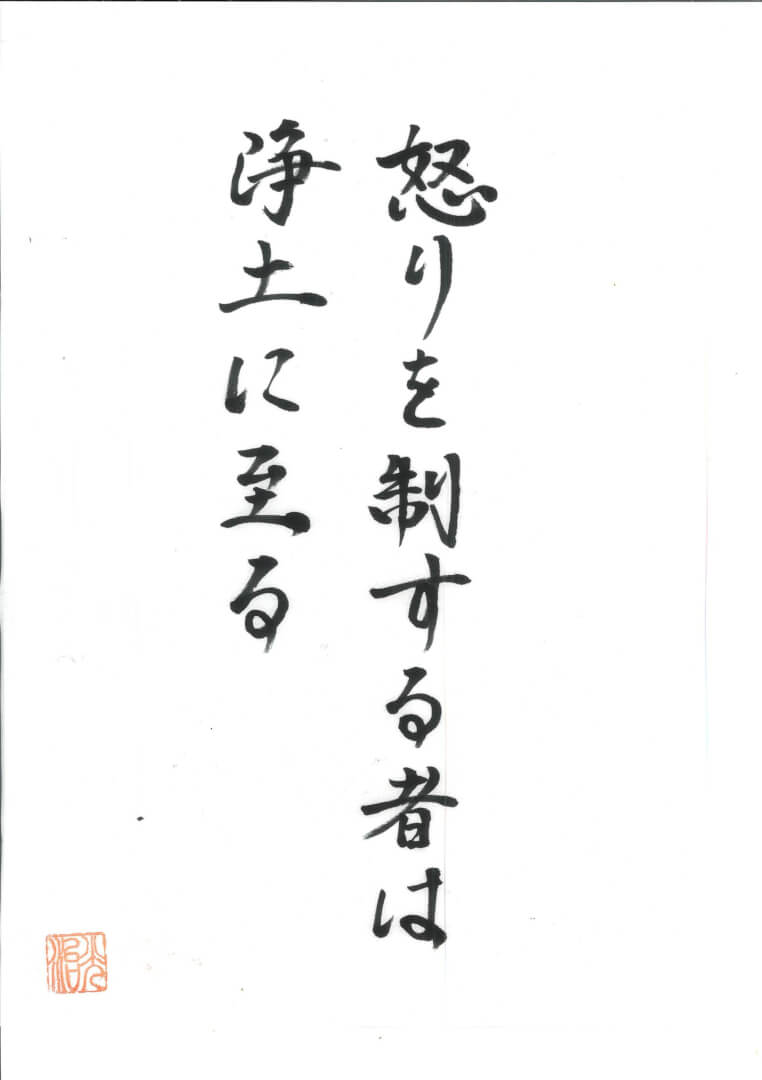 怒りを制する者は
浄土に至る